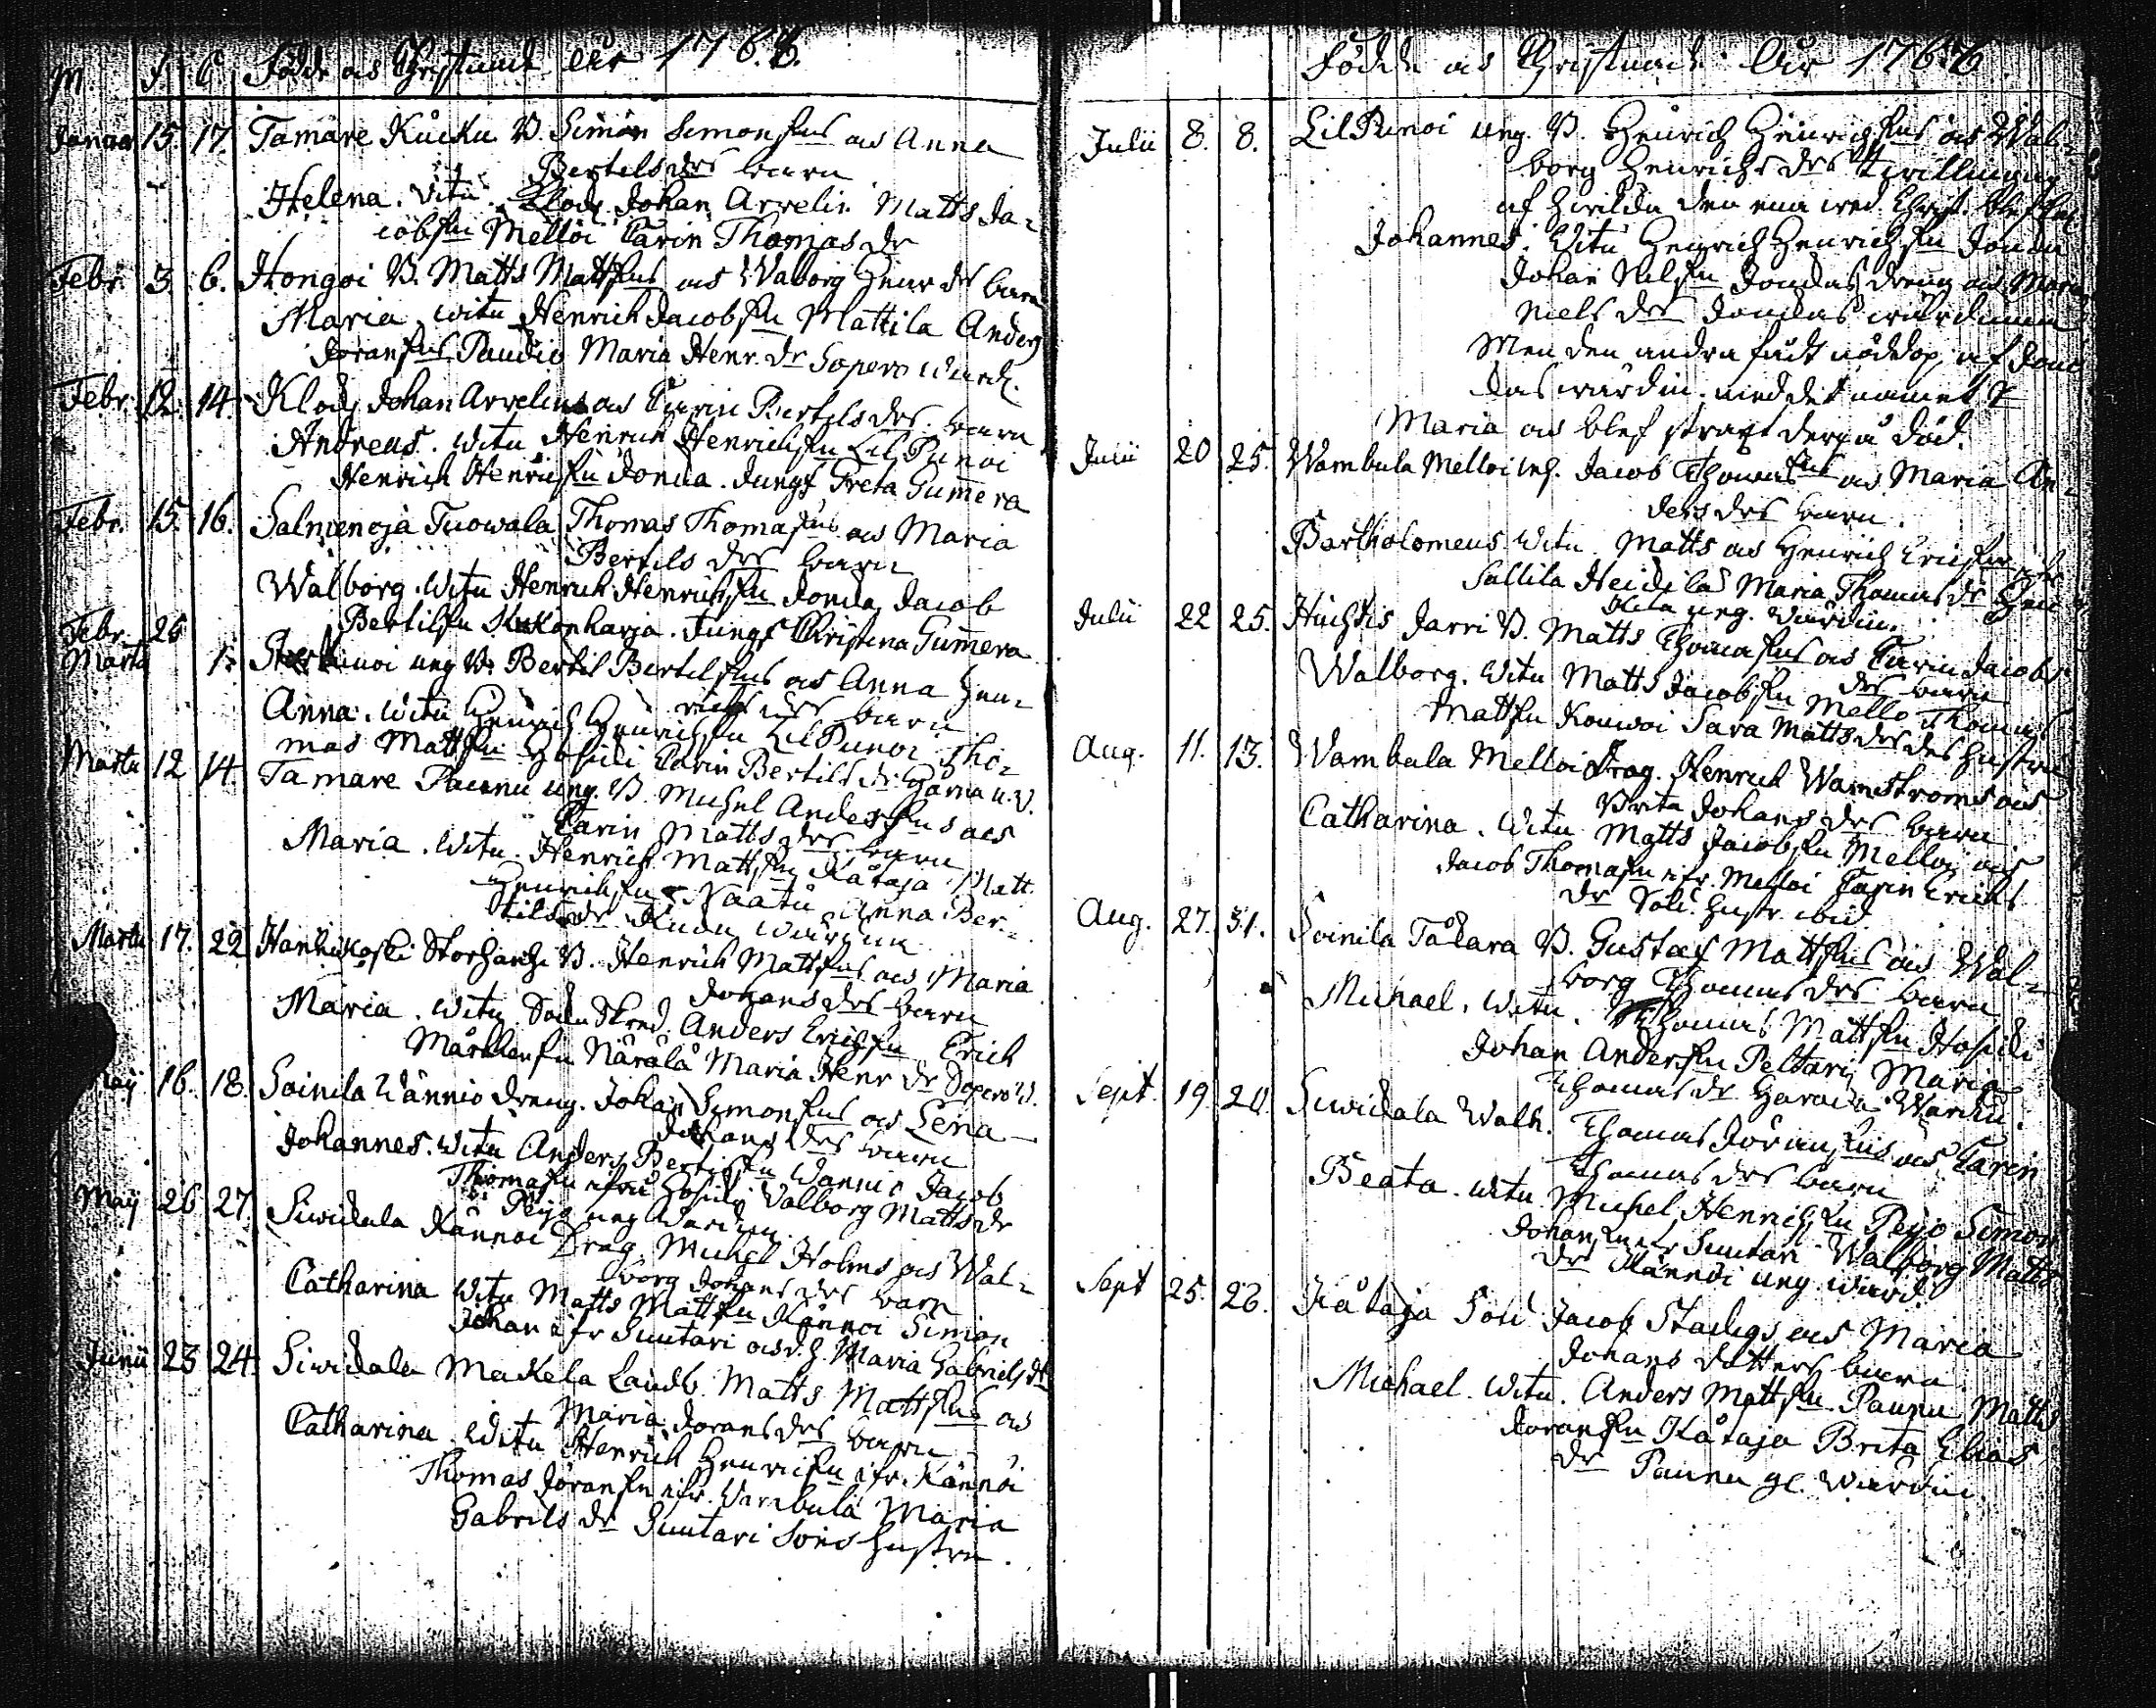 M. F. C. Födde och Christnade Åhr 1766.
Januar 15. 17. Tamare Kucku B. Simon Simonssons och Anna
Bertels drs barn
Helena. Vitn. Klock. Johan Arvelin Matts Ja-
cobssn Melloi Carin Thomas dr
Febr. 3. 6. Hongoi B. Matts Mattssons och Waborg Henr drs barn
Maria. witn Henrich Jacobssn Mattila Anders
Joranssns Paudio Maria Henr. dr Sopero Ward.
Febr. 12. 14. Klock Johan Arvelins och Carin Bertels drs. barn
Andreas. witn Henrich Henrichssn Lil Punoi
Henrich Henrichssn Jonna. Jungf Greta Gummera
Febr. 15. 16. Salmenoja Tuowala Thomas Thomassons och Maria
Bertils drs barn
Walborg. Witn Henrich Henrichssn Jonda Jacob
Bertilssn Kukonharja. Jungf Christina Gummera
Febr. 26
Martii 1. Punoi ung B. Bertil Bertelssns och Anna Hen-
richs drs barn
Anna. witn Henrich Henrichssn Lil Punoi Tho-
mas Mattssn Hosidi Carin Bertils dr
Martii 12 14. Tamare Paunu ung. B. Michel Anderssns och
Carin Matts drs barn
Maria. Witn. Henrich Mattssn Kåtaja Matt.
Henrichssn Naatu Anna Ber-
tils dr wärdinn
Martii 17. 22 Hanhikoski Storhanh. B. Henrich Mattssns och Maria
Johans drs barn
Maria. witn. Sockn Skred. Anders Erichssn Erich
Mårthenssn Närälä Maria Henr dr Sopero W.
Maij 16. 18. Soinila Wännio dreng. Johan Simonssns och Lena
Johans drs barn
Johannes. witn Anders Bertilssn Wännio Jacob
Thomassn ifrå Hosidi Valborg Matts dr
Peijo ung Wardinn
Maij 26 27. Siwidala Kännöi Drag. Michel Holms och Wal-
borg Johans drs barn
Catharina witn Matts Mattssn Kännöi Simon
Johan ifr Suutari och d. h. Maria Gabriels dr
Junii 23 24. Siwidala Mackela Landb. Matts Mattssns och
Maria Jorans drs barn
Catharina. Witn Henrich Henrichssn ifr. Kännöi
Thomas Joranssn ifr. Wambula Maria
Gabrils dr Suutari Sons hustru.
Födde och Christnade Åhr 1766
Julii 8. 8. Lil Punoi ung. B. Henrich Henrichssns och Wal-
borg Henrichs drs twillingar
af hwilka den ena wed Christ. blef
Johannes. Witn Henrich Henrichssn Jonda
Johan Nilssn Jondas dreng och Maria
Niels dr Jondas wärdinna
Men den andra fådt nöddop af Jon-
das wärdin. med det namnet
Maria och blef straxt derpå död.
Julii 20 25. Wambula Melloi Inh. Jacob Thomassns och Maria An-
ders drs barn.
Bartholomeus. Witn. Matts och Henrich Erichssn
Sallila Heidila Maria Thomas dr
ung. wärdin.
Julii 22 25. Huchtis Jarri B. Matts Thomassns och Carin Jacobs
drs barn
Walborg. Witn Matts Jacobssn Mello Thomas
Mattssn Kouwoi Sara Matts dr des hustru
Aug. 11. 13. Wambula Melloi Drag. Henrich Wamstroms och
Brita Johans drs barn
Catharina. Witn Matts Jacobssn Melloi och
Jacob Thomassn ifr. Melloi Carin Erichs
dr Sold. hustr. ibid
Aug. 27. 31. Soinila Tålara B. Gustaf Mattssns och Wal-
borg Thomas drs barn
Michael. Witn. Thomas Mattssn Hosidi
Johan Anderssn Peltari Maria
Thomas dr Wardin.
Sept. 19. 20. Siwidala Walk. Thomas Joranssns och Carin
Thomas drs barn
Beata. witn Michel Henrichssn Peijo Simon
Johanssn ifr Suutari Walborg Matts
dr Kännöi ung ward.
Sept 25. 28. Kåtaja Sold Jacob Stadigs och Maria
Johans dotters barn
Michael. Witn. Anders Mattssn Paunu Matts
Joranssn Kåtaja Brita Elias
dr Paunu gl. wärdin.